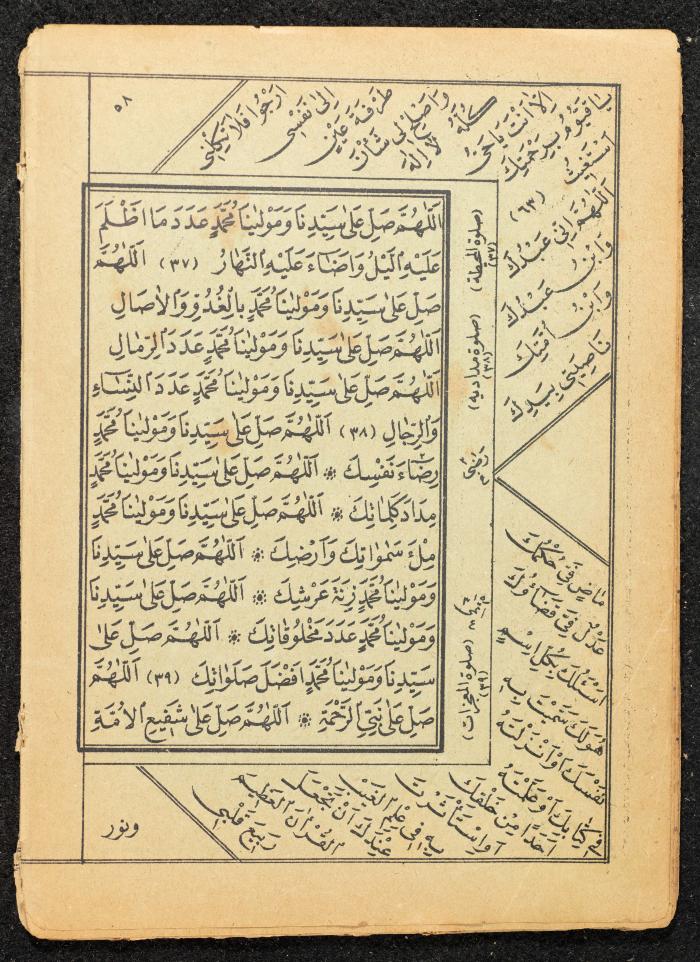 ٥٨
اَللّٰهُمَّ صَلِّ عَلٰى سَيِّدِنَا وَمَوْلٰينَا مُحَمَّدٍ عَدَدَ مَا اَظْلَمَ
عَلَيْهِ الَّيْلُ وَاَضَاءَ عَلَيْهِ النَّهَارُ (٣٧) اَللّٰهُمَّ
صَلِّ عَلٰى سَيِّدِنَا وَمَوْلٰينَا مُحَمَّدٍ بِالْغُدُوِّ وَالْاٰصَالِ
اَللّٰهُمَّ صَلِّ عَلٰى سَيِّدِنَا وَمَوْلٰينَا مُحَمَّدٍ عَدَدَ الرِّمَالِ
اَللّٰهُمَّ صَلِّ عَلٰى سَيِّدِنَا وَمَوْلٰينَا مُحَمَّدٍ عَدَدَ النِّسَاءِ
وَالرِّجَالِ (٣٨) اَللّٰهُمَّ صَلِّ عَلٰى سَيِّدِنَا وَمَوْلٰينَا مُحَمَّدٍ
رِضَاءَ نَفْسِكَ ❋ اَللّٰهُمَّ صَلِّ عَلٰى سَيِّدِنَا وَمَوْلٰينَا مُحَمَّدٍ
مِدَادَ كَلِمَاتِكَ ❋ اَللّٰهُمَّ صَلِّ عَلٰى سَيِّدِنَا وَمَوْلٰينَا مُحَمَّدٍ
مِلْءَ سَمٰوَاتِكَ وَاَرْضِكَ ❋ اَللّٰهُمَّ صَلِّ عَلٰى سَيِّدِنَا
وَمَوْلٰينَا مُحَمَّدٍ زِنَةَ عَرْشِكَ ❋ اَللّٰهُمَّ صَلِّ عَلٰى سَيِّدِنَا
وَمَوْلٰينَا مُحَمَّدٍ عَدَدَ مَخْلُوقَاتِكَ ❋ اَللّٰهُمَّ صَلِّ عَلٰى
سَيِّدِنَا وَمَوْلٰينَا مُحَمَّدٍ اَفْضَلَ صَلَوَاتِكَ (٣٩) اَللّٰهُمَّ
صَلِّ عَلٰى نَبِيِّ الرَّحْمَةِ ❋ اَللّٰهُمَّ صَلِّ عَلٰى شَفِيعِ الْاُمَّةِ
(صلوة المحيطة)
(٣٧)
(صلوة مداديه)
(٣٨)
(صلوة المعجزات)
(٣٩)
يَاقَيُّومُ بِرَحْمَتِكَ
اَسْتَغِيثُ
اِلَّا اَنْتَ يَا حَيُّ
كُلَّهُ لَا اِلٰهَ
وَاَصْلِحْ لِى شَأْنِى
طَرْفَةَ عَيْنٍ
اِلٰى نَفْسِى
اَرْجُوا فَلَا تَكِلْنِى
(٦٣)
اَللّٰهُمَّ اِنِّى عَبْدُكَ
وَابْنُ عَبْدِكَ
وَابْنُ اَمَتِكَ
نَاصِيَتِى بِيَدِكَ
مَاضٍ فِىَّ حُكْمُكَ
عَدْلٌ فِىَّ قَضَاؤُكَ
اَسْئَلُكَ بِكُلِّ اسْمٍ
هُوَ لَكَ سَمَّيْتَ بِهِ
نَفْسَكَ اَوْ اَنْزَلْتَهُ
فِى كِتَابِكَ اَوْ عَلَّمْتَهُ
اَحَدًا مِنْ خَلْقِكَ
اَوِ اسْتَأْثَرْتَ
بِهِ فِى عِلْمِ الْغَيْبِ
عِنْدَكَ اَنْ تَجْعَلَ
الْقُرْاٰنَ الْعَظِيمَ
رَبِيعَ قَلْبِى
ونور